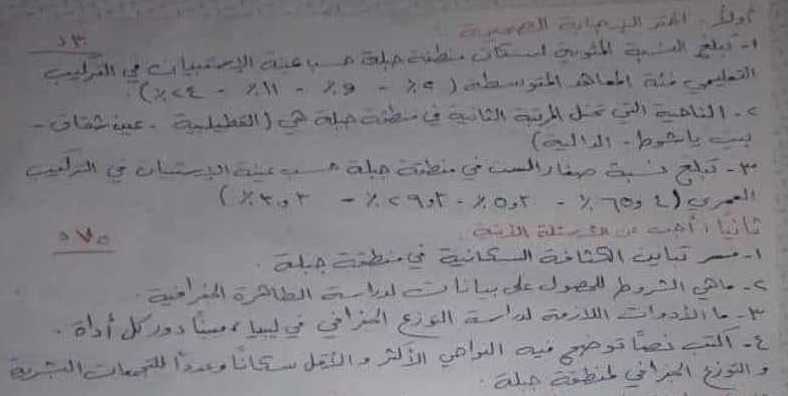 أولاً: اختر الإجابة الصحيحة
٣٠ د
١- تبلغ النسبة المئوية لسكان منطقة جبلة حسب عينة الاستبيان في التركيب
التعليمي فئة المعاهد المتوسطة (٢٪ - ٩٪ - ١١٪ - ٢٤٪).
٢- الناحية التي تحتل المرتبة الثانية في منطقة جبلة هي (القطيلبية - عين شقاق -
بيت ياشوط - الدالية)
٣- تبلغ نسبة صغار السن في منطقة جبلة حسب عينة الاستبيان في التركيب
العمري (
ثانياً: أجب عن الأسئلة الآتية
٧٥ د
١- فسر تباين الكثافة السكانية في منطقة جبلة.
٢- ماهي الشروط للحصول على بيانات لدراسة الظاهرة الجغرافية.
٣- ما الأدوات اللازمة لدراسة التوزع الجغرافي في ليبيا، مبيناً دور كل أداة.
٤- اكتب نصاً توضح فيه النواحي الأكثر والأقل سكاناً وعدداً للتجمعات البشرية
و التوزع الجغرافي لمنطقة جبلة.